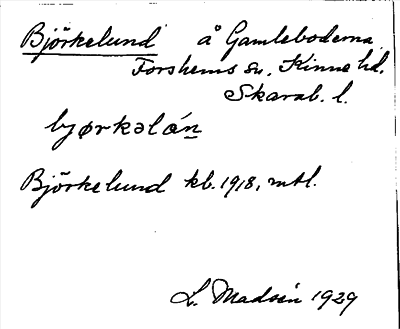 Björkelund å Gamleboderna,
Forshems sn. Kinne hd.
Skarab. l.
bjørkəlón
Björkelund kb. 1918, mtl.
L. Madsén 1929